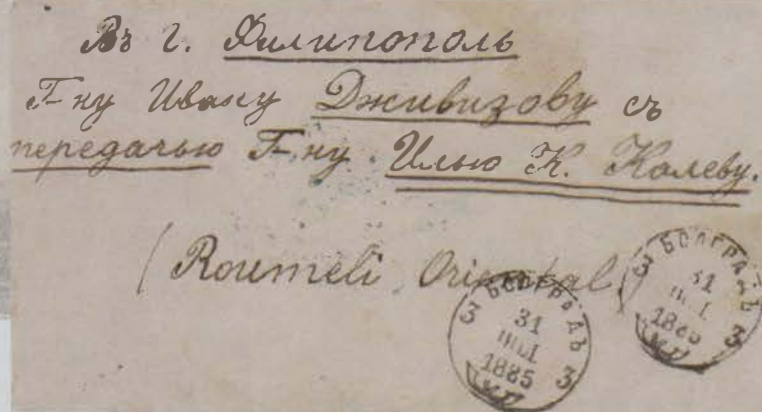 Въ г. Филипополь
Г-ну Ивану Дживизову съ
передачью Г-ну Илью К. Калеву.
(Roumeli Oriental)
3 БОЛГРАДЪ 3
31
1885
3 БОЛГРАДЪ 3
31
1885